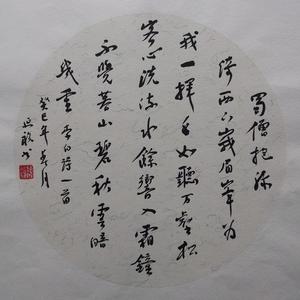 蜀僧抱綠
綺西下峨眉峰為
我一揮手如聽万壑松
客心洗流水餘響入霜鐘
不覺暮山碧秋雲暗
幾重 李白詩一首
癸巳年月
书